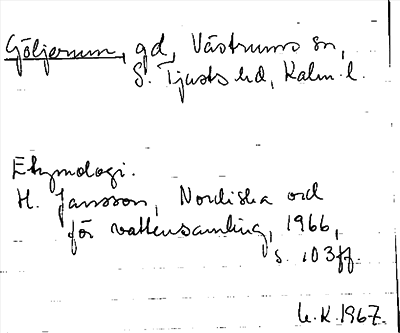 Göljerum, gd, Västrums sn,
S. Tjusts hd, Kalm. l.
Etymologi.
H. Jansson, Nordiska ord
för vattensamling, 1966,
s. 103 ff.
U.K. 1967.